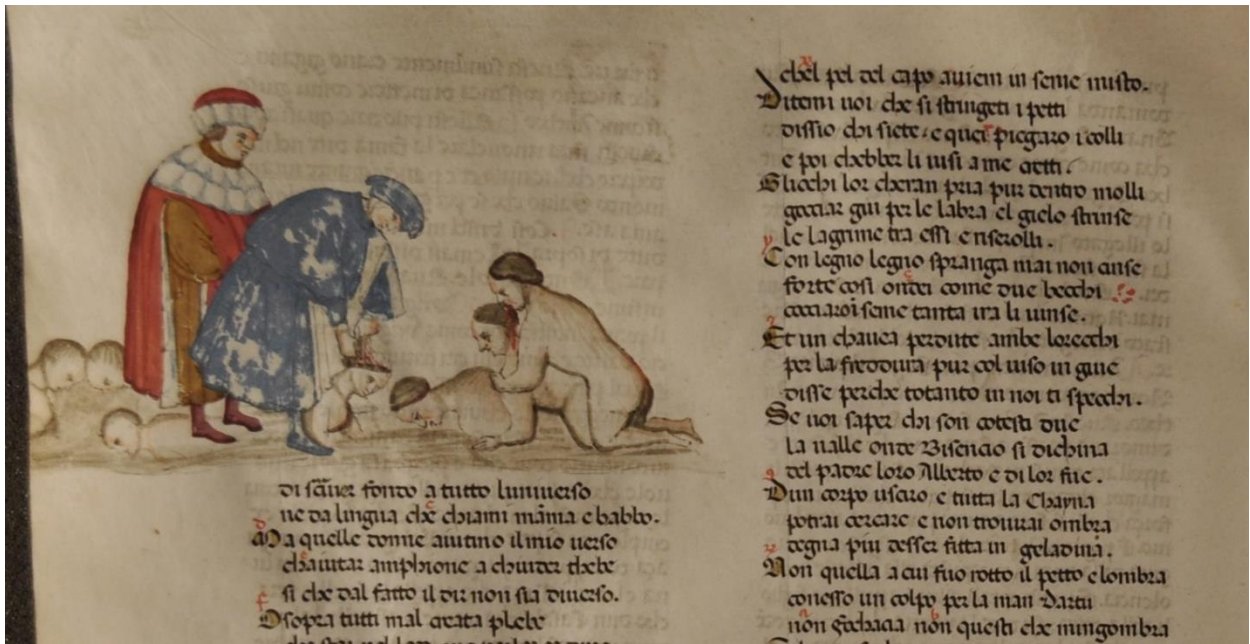 di scriver fondo a tutto luniverso
ne da lingua che chiami mama e babbo.
Ma quelle donne aiutino il mio verso
chaiutar amphione a chiuder thebe
si che dal fatto il dir non sia diverso.
O sopra tutti mal creata plebe
chel pel del capo avieno in seme misto.
Ditemi voi che si stringeti i petti
dissio chi siete e quei piegaro i colli
e poi chebber li visi a me eretti.
Gliocchi lor cheran pria pur dentro molli
gocciar giu per le labra el gielo strinse
le lagrime tra essi e riserolli.
Con legno legno spranga mai non cinse
forte cosi ondei come due becchi
cozzaro inseme tanta ira li vinse.
Et un chavea perdute ambe lorecchi
per la freddura pur col viso in giue
disse perche cotanto in noi ti specchi.
Se voi saper chi son cotesti due
la valle onde Bisencio si dichina
del padre loro Alberto e di lor fue.
Dun corpo usciro e tutta la Chayna
potrai cercare e non trovrai ombra
degna piu desser fitta in geladina.
Non quella a cui fuo rotto il petto e lombra
conesso un colpo per la man Dartu
non focacia non questi che mingombra